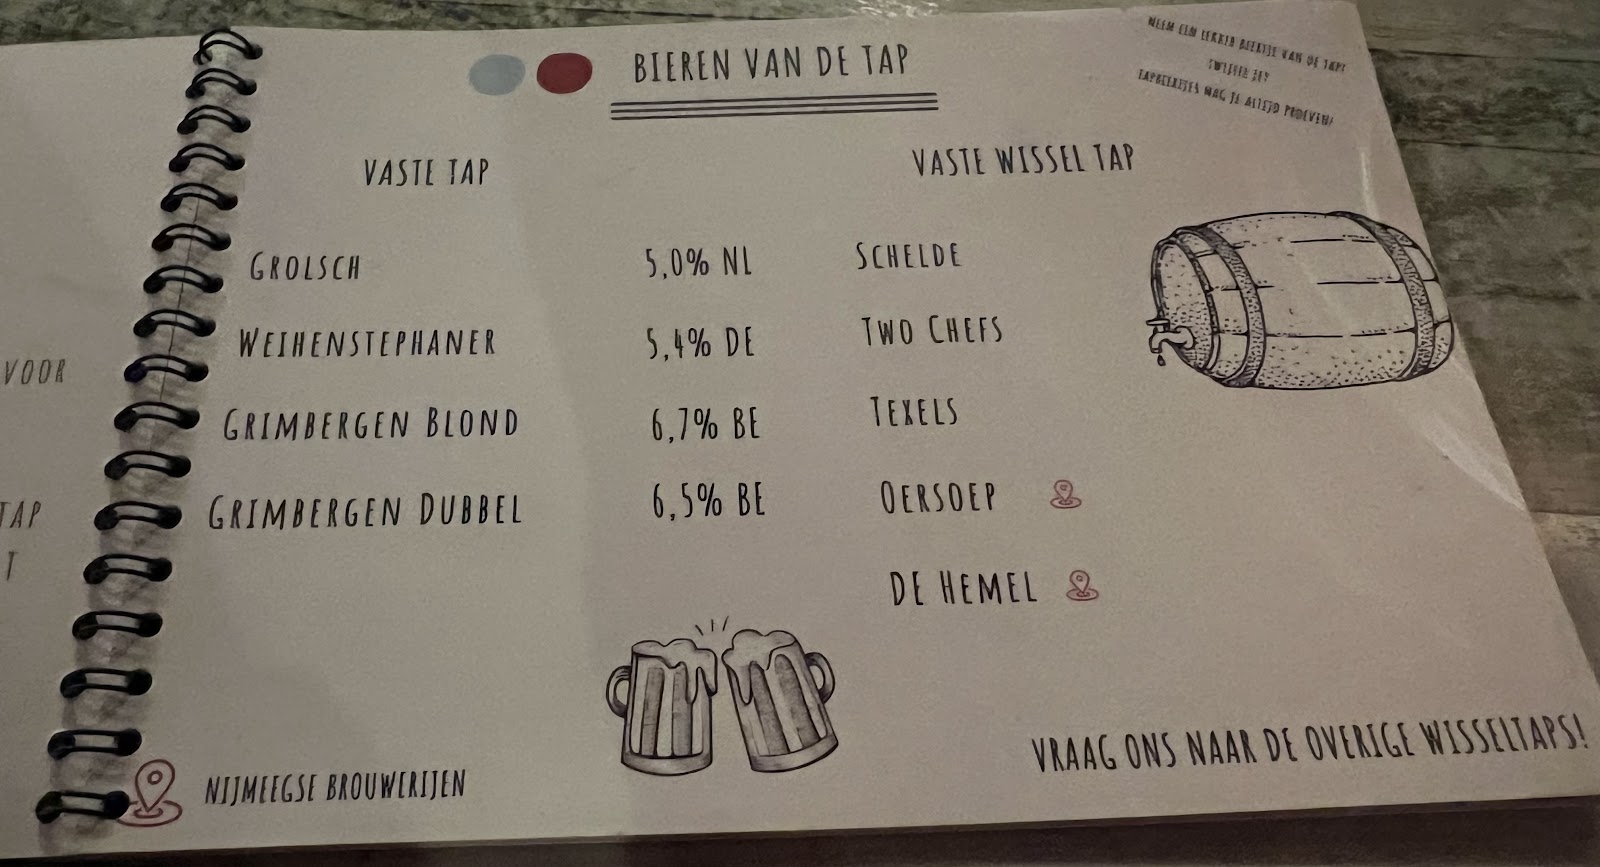 BIEREN VAN DE TAP
NEEM EEN LEKKER BIERTJE VAN DE TAP!
TWIJFEL JE?
TAPBIERTJES MAG JE ALTIJD PROEVEN!
VASTE TAP
GROLSCH 5,0% NL
WEIHENSTEPHANER 5,4% DE
GRIMBERGEN BLOND 6,7% BE
GRIMBERGEN DUBBEL 6,5% BE
VASTE WISSEL TAP
SCHELDE
TWO CHEFS
TEXELS
OERSOEP
DE HEMEL
NIJMEEGSE BROUWERIJEN
VRAAG ONS NAAR DE OVERIGE WISSELTAPS!
VOOR
TAP
T